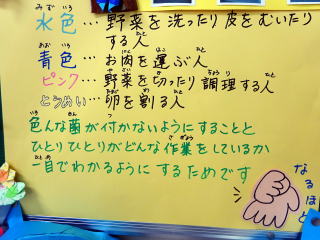 水色…野菜を洗ったり皮をむいたり
する人
青色…お肉を運ぶ人
ピンク…野菜を切ったり調理する人
とうめい…卵を割る人
色んな菌が付かないようにすることと
ひとりひとりがどんな作業をしているか
一目でわかるようにするためです
なるほど